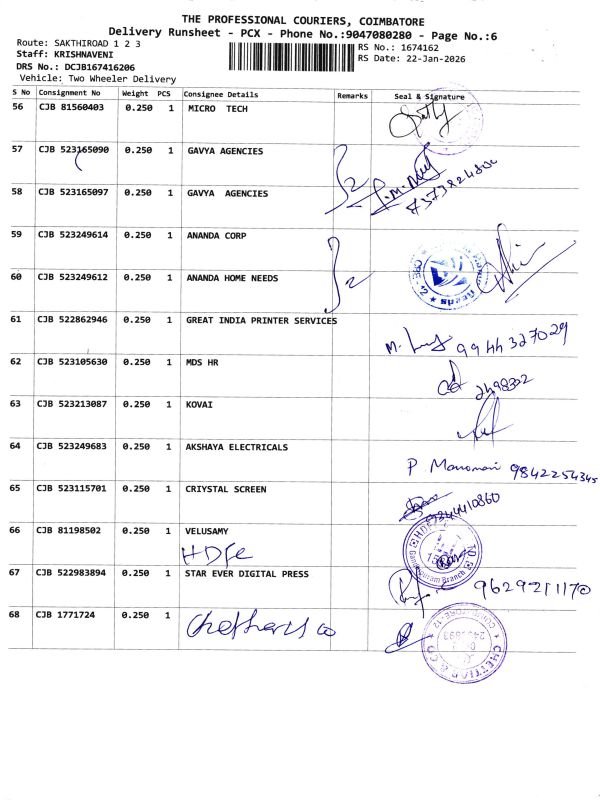 THE PROFESSIONAL COURIERS, COIMBATORE
Delivery Runsheet - PCX - Phone No.:9047080280 - Page No.:6
Route: SAKTHIROAD 1 2 3
Staff: KRISHNAVENI
DRS No.: DCJB167416206
Vehicle: Two Wheeler Delivery
RS No.: 1674162
RS Date: 22-Jan-2026
S No Consignment No Weight PCS Consignee Details Remarks Seal & Signature
56 CJB 81560403 0.250 1 MICRO TECH
57 CJB 523165090 0.250 1 GAVYA AGENCIES
58 CJB 523165097 0.250 1 GAVYA AGENCIES 7373824800
59 CJB 523249614 0.250 1 ANANDA CORP
60 CJB 523249612 0.250 1 ANANDA HOME NEEDS
61 CJB 522862946 0.250 1 GREAT INDIA PRINTER SERVICES 9944327029
62 CJB 523105630 0.250 1 MDS HR 2498302
63 CJB 523213087 0.250 1 KOVAI
64 CJB 523249683 0.250 1 AKSHAYA ELECTRICALS P Manomani 9842254345
65 CJB 523115701 0.250 1 CRIYSTAL SCREEN 9344410860
66 CJB 81198502 0.250 1 VELUSAMY
HDFC
67 CJB 522983894 0.250 1 STAR EVER DIGITAL PRESS 9629211170
68 CJB 1771724 0.250 1
CHETTIAR & CO